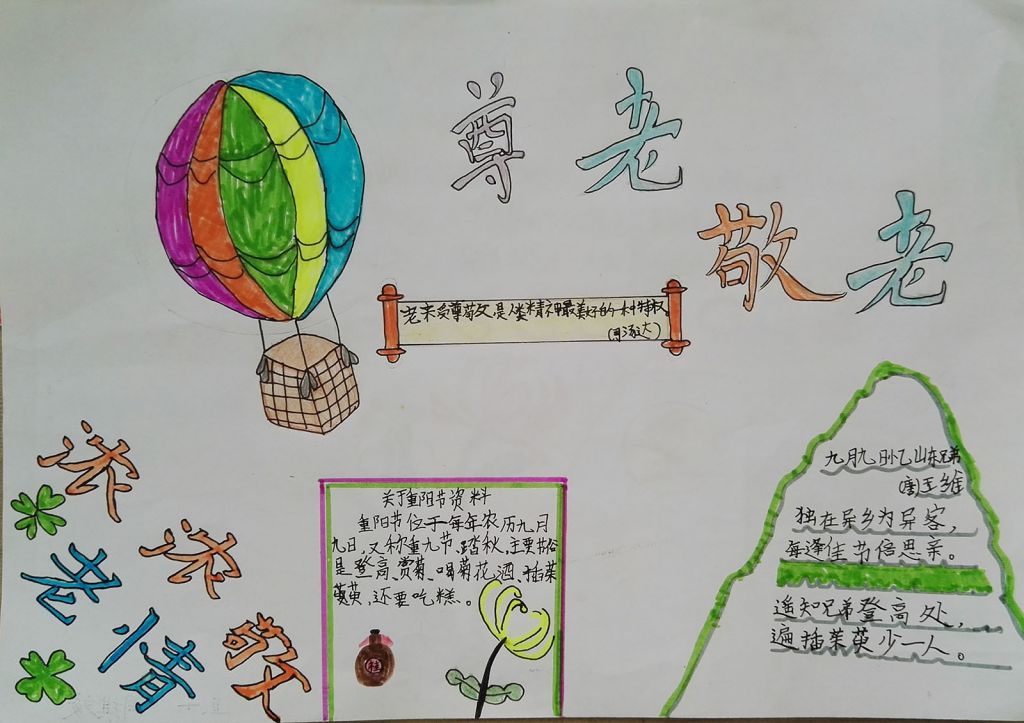 尊老
敬老
老来受尊敬是人类精神最美好的一种特权
(司汤达)
浓浓敬
老情
关于重阳节资料
重阳节位于每年农历九月
九日,又称重九节、踏秋,主要节俗
是登高、赏菊、喝菊花酒、插茱
萸,还要吃糕。
九月九日忆山东兄弟
(唐)王维
独在异乡为异客,
每逢佳节倍思亲。
遥知兄弟登高处,
遍插茱萸少一人。